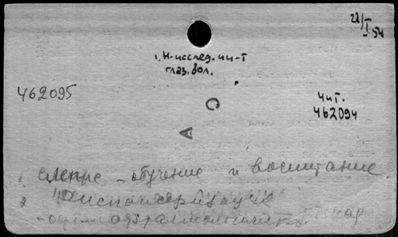 22/I 54
1, Н-исслед. ин-т
глаз. бол.
462095
С
А
чит.
462094
1, слепые - обучение и воспитание
2 "Диспансеризация"